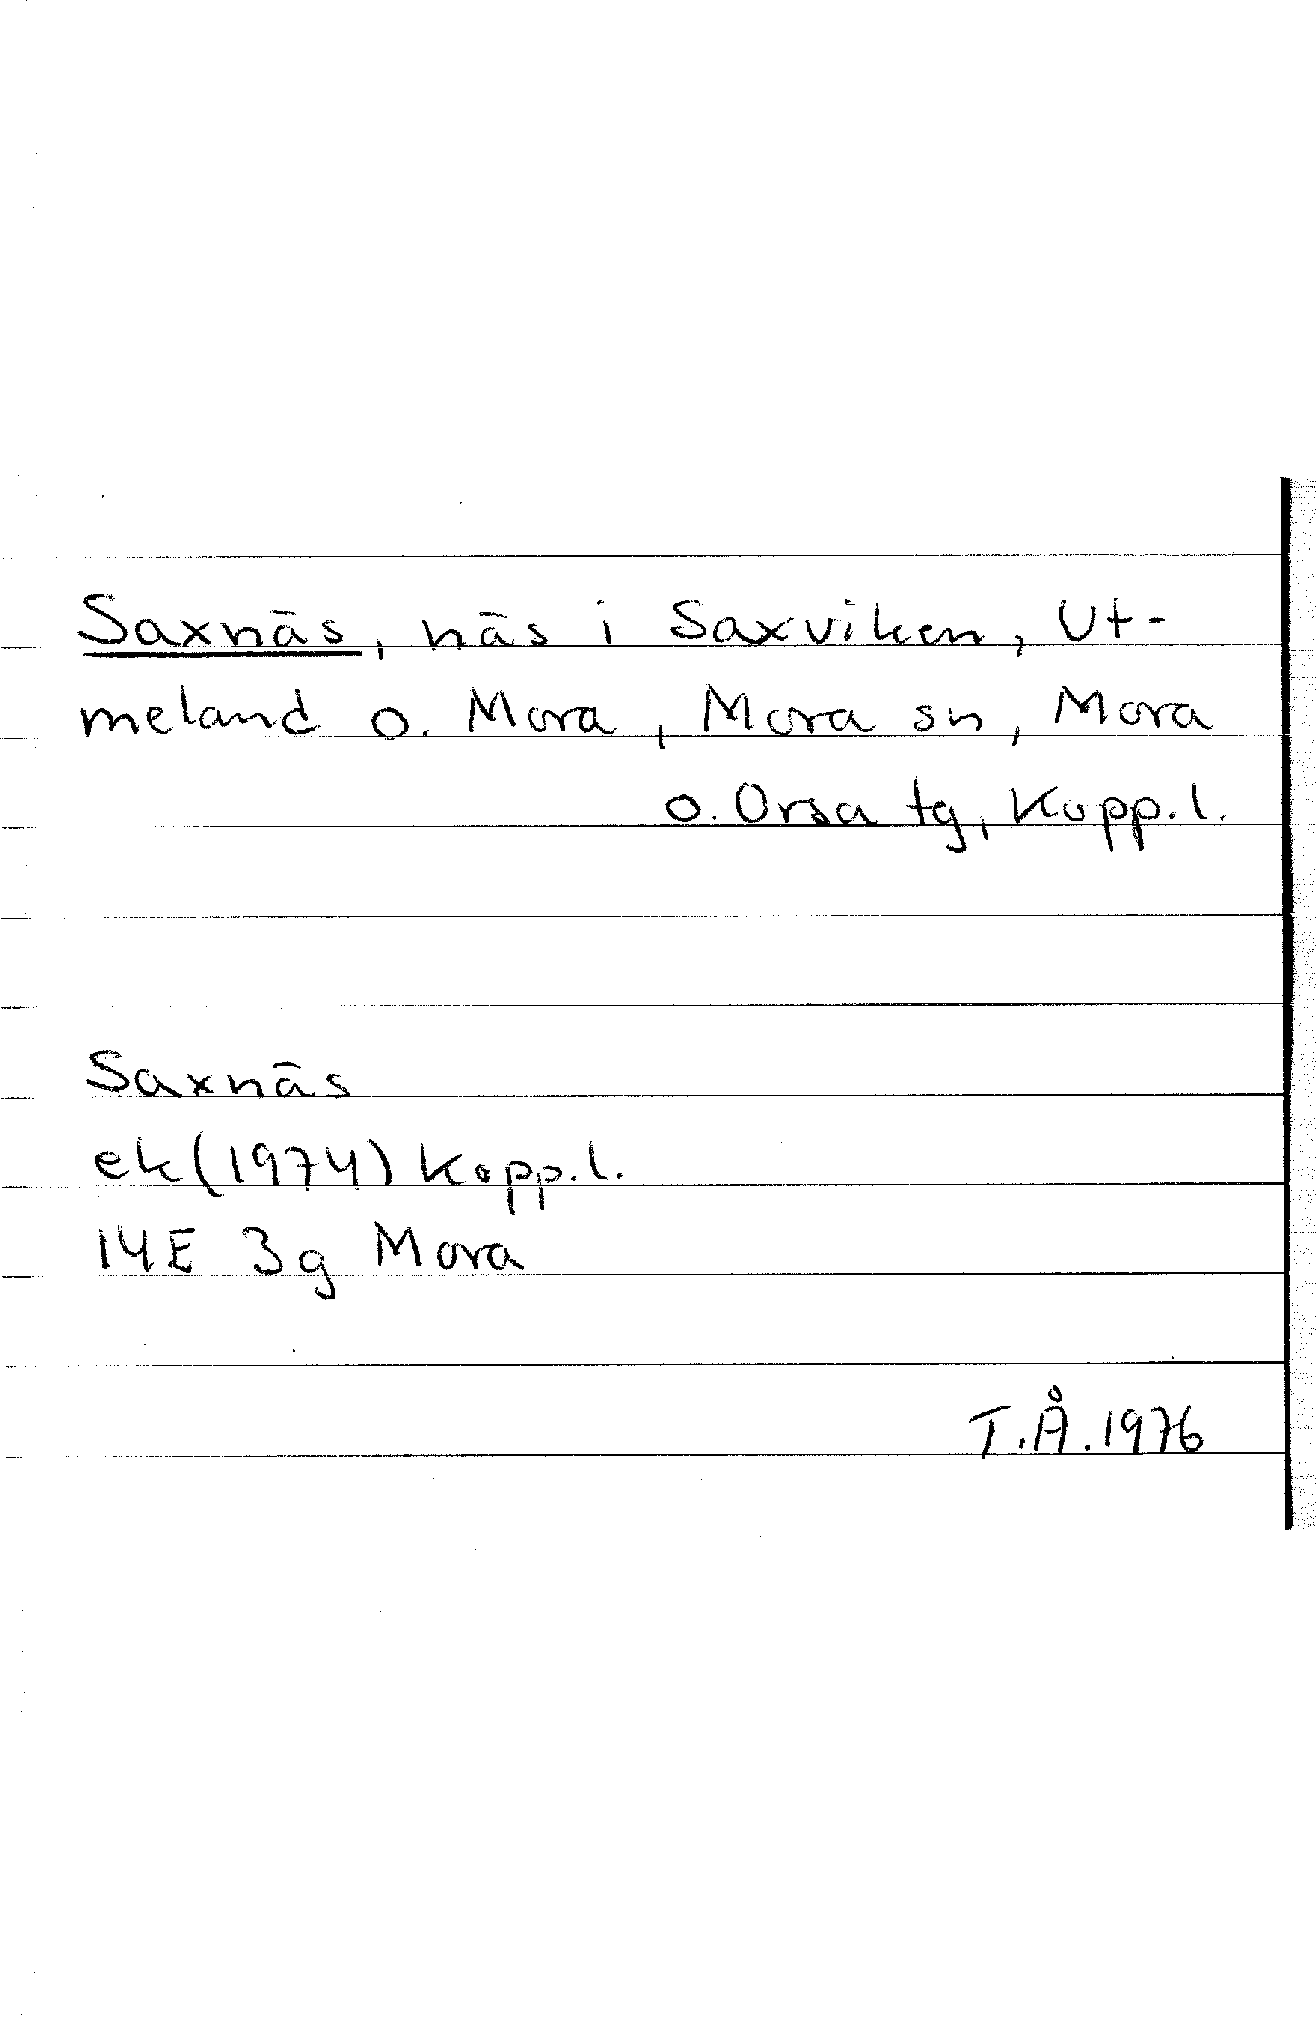 Saxnäs, näs i Saxviken, Ut-
meland o. Mora, Mora sn, Mora
o. Orsa tg, Kopp.l.
Saxnäs
ek(1974) Kopp.l.
14E 3g Mora
T.Å.1976